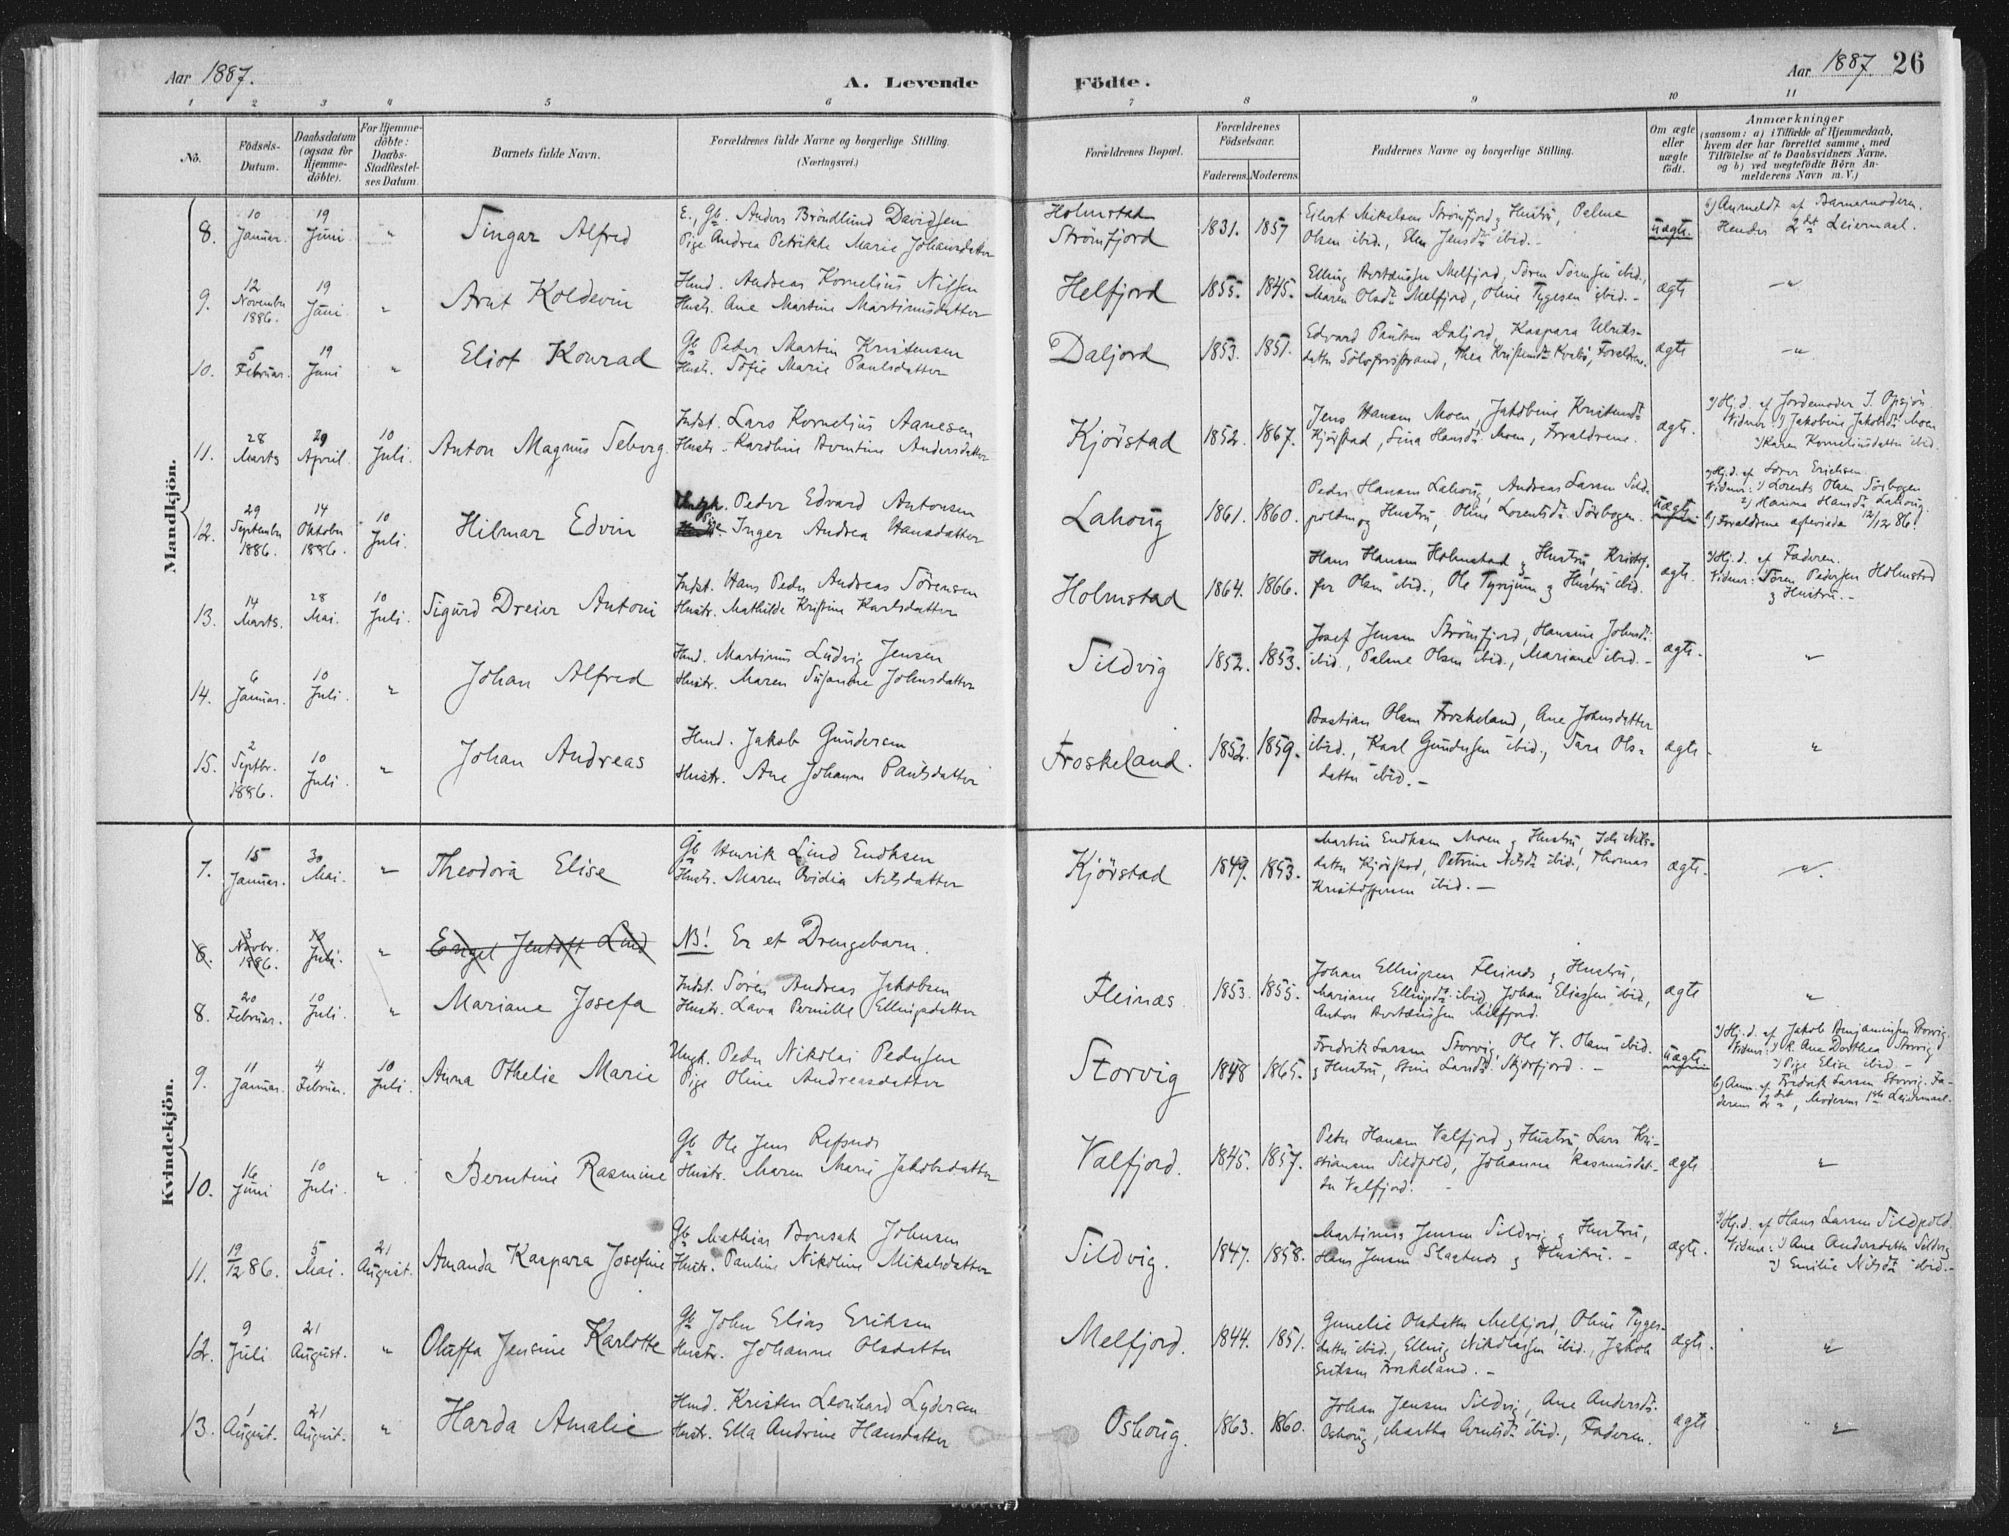 Aar 1887.
A. Levende
Födte.
Aar 1887
26
1 2 3 4 5 6 7 8 9 10 11
No.
Födsels-
Datum.
Daabsdatum
(ogsaa for
Hjemme-
döbte).
For Hjemme-
döbte:
Daabs-
Stadfæstel-
ses Datum.
Barnets fulde Navn.
Forældrenes fulde Navne og borgerlige Stilling.
(Næringsvei.)
Forældrenes Bopæl.
Forældrenes
Födselsaar.
Faderens. Moderens.
Faddernes Navne og borgerlige Stilling.
Om ægte
eller
uægte
födt.
Anmærkninger
(saasom: a) i Tilfælde af Hjemmedaab,
hvem der har forrettet samme, med
Tilföielse af to Daabsvidners Navne,
og b) ved uægtefödte Börn An-
melderens Navn m. V.)
Mandkjön.
8. 10 Januar. 19 Juni " Singar Alfred
E., Gb. Anders Bröndlund Davidsen
Pige Andrea Petrikke Marie Johansdatter
Holmstad
Strömfjord
1831. 1857
Eilert Mikalsen Strömfjord & Hustru, Palme
Olsen ibid., Elen Jensdr ibid.
uægte.
b) Anmeldt af Barnemoderen.
Hendes 2det Leiermaal.
9. 12 Novembr 1886. 19 Juni " Arnt Koldevin
Hmd. Andreas Kornelius Nilsen
Hustr. Ane Martine Martinusdatter
Helfjord 1855. 1845.
Maren Olsdr Melfjord, Oline Tygesen ibid. ægte "
10. 5 Februar. 19 Juni " Eliot Konrad
Gb Peder Martin Kristensen
Hustr. Sofie Marie Paulsdatter
Daljord 1853. 1851.
Edvard Paulsen Daljord, Kaspara Ulriks-
ægte "
11. 28 Marts 29 April 10 Juli. Anton Magnus Seberg.
Indst. Lars Kornelius Aanesen
Hustr. Karoline Berntine Andersdatter
Kjörstad 1852. 1867.
Jens Hansen Moen, Jakobine Kristensdr
Kjörstad, Sina Hansdr Moen, Forældrene.
ægte.
a) Hj.d. af Jordemoder
Vidner: 1) Jakobine Jakobsdr Moen
2) Karen Korneliusdatter ibid.
12. 29 Septembr 1886. 14 Oktober 1886. 10 Juli. Hilmar Edvin
Ungk. Peder Edvard Antonsen
Pige Inger Andrea Hansdatter
Lahoug 1861. 1860.
Peder Hansen Lahoug, Andreas Larsen Sild-
polden og Hustru, Oline Lorentsdr Sörbogen.
uægte
Vidner: 1) Lorents Olsen Sörbogen
2) Hanna Hansdr Lahoug.
12/12 86.
13. 14 Marts. 28 Mai. 10 Juli. Sigurd Dreier Antoni
Indst. Hans Peder Andreas Sörensen
Hustr. Mathilde Kristine Karlsdatter
Holmstad 1864. 1866.
Hans Hansen Holmstad & Hustru, Kristof-
fer Olsen ibid., Ole & Hustru ibid.
ægte.
a) Hj.d. af Faderen.
Vidner: Sören Pedersen Holmstad
& Hustru.
14. 6 Januar. 10 Juli. " Johan Alfred
Hmd. Martinus Ludvig Jensen
Hustr. Maren Susanne Johnsdatter
Sildvig 1852. 1853.
Josef Jensen Strömfjord, Hansine Johnsdr
ibid., Palme Olsen ibid., Mariane ibid.
ægte. "
15. 2 Septbr. 1886. 10 Juli. " Johan Andreas
Hmd. Jakob Gundersen
Hustr. Ane Johanne Paulsdatter
Froskeland. 1852. 1859.
Bastian Olsen Froskeland, Ane Johnsdatter
ibid., Karl Gundersen ibid., Sara Ols-
datter ibid.
ægte "
Kvindekjön.
7. 15 Januar. 30 Mai. " Theodora Elise
Gb Henrik Lind Endksen
Hustr. Maren Ovidia Nilsdatter
Kjörstad 1849. 1853.
Martin Endksen Moen & Hustru,
datter Kjörstad, Petrine Nilsdr ibid., Thomas
Kristoffersen ibid.
ægte. "
8. 3 Novbr. 1886. 10 Juli. " Engel Jentoft Lind
NB! Er et Drengebarn.
8. 20 Februar. 10 Juli. " Mariane Josefa
Indst. Sören Andreas Jakobsen
Hustr. Lava Pernille Ellingsdatter
Fleinæs 1853. 1855.
Johan Ellingsen Fleinæs & Hustru,
Mariane Ellingsdr ibid, Johan Eliassen ibid,
ægte "
9. 11 Januar. 4 Februar. 10 Juli. Anna Othelie Marie
Ungk. Peder Nikolai Pedersen
Pige Oline Andreasdatter
Storvig 1848 1865.
Fredrik Larsen Storvig, Ole V. Olsen ibid.
& Hustru, Stine Larsdr Skjörfjord.
uægte
a) Hj.d. af Jakob Benjaminsen Storvig.
Vidner: 1) K Ane Dorthea Storvig
2) Pige Elise ibid.
b) Anm. af Fredrik Larsen Storvig. Fa-
derens 2det, Moderens 1ste Leiermaal.
10. 16 Juni 10 Juli. " Berntine Rasmine
Gb Ole Jens Refsnes
Hustr. Maren Marie Jakobsdatter
Valfjord. 1845. 1857.
Peder Hansen Valfjord & Hustru Lars Kri-
stiansen Sildpold, Johanna Rasmusdat-
ter Valfjord.
ægte "
11. 19/12 86. 5 Mai. 21 August. Amanda Kaspara Josefine
Gb Mathias Bonsak Johnsen
Hustr. Pauline Nikoline Mikalsdatter
Sildvig. 1847. 1858.
Martinus Jensen Sildvig & Hustru,
Hans Jensen Slagtnes & Hustru.
ægte.
a) Hj.d. af Hans Larsen Sildpold.
Vidner: 1) Ane Andersdatter Sildvig
2) Emilie Nilsdr ibid.
12. 9 Juli 21 August. " Olaffa Jensine Karlotte
Gb John Elias Eriksen
Hustr. Johanne Olsdatter
Melfjord. 1844. 1851.
Gunelie Olsdatter Melfjord, Oline Tyges-
datter ibid., Elling Nikolaisen ibid., Jakob
Eriksen Froskeland.
ægte. "
13. 1 August. 21 August. " Harda Amalie
Hmd. Kristen Leonhard Lydersen
Hustr. Ella Andrine Hansdatter
Oshoug. 1863. 1860.
Johan Jensen Sildvig, Ane Andersdr
Oshoug, Martha Arntsdr ibid., Faderen.
ægte "